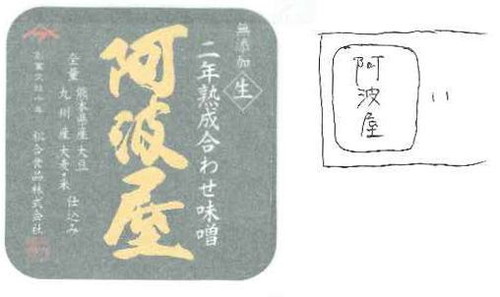 無添加 生
二年熟成合わせ味噌
阿波屋
全量 熊本県産大豆
九州産大麦・米 仕込み
創業文政十年 松合食品株式会社
阿波屋
い